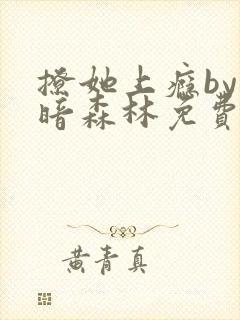 撩她上瘾by
暗森林免費
黄青真